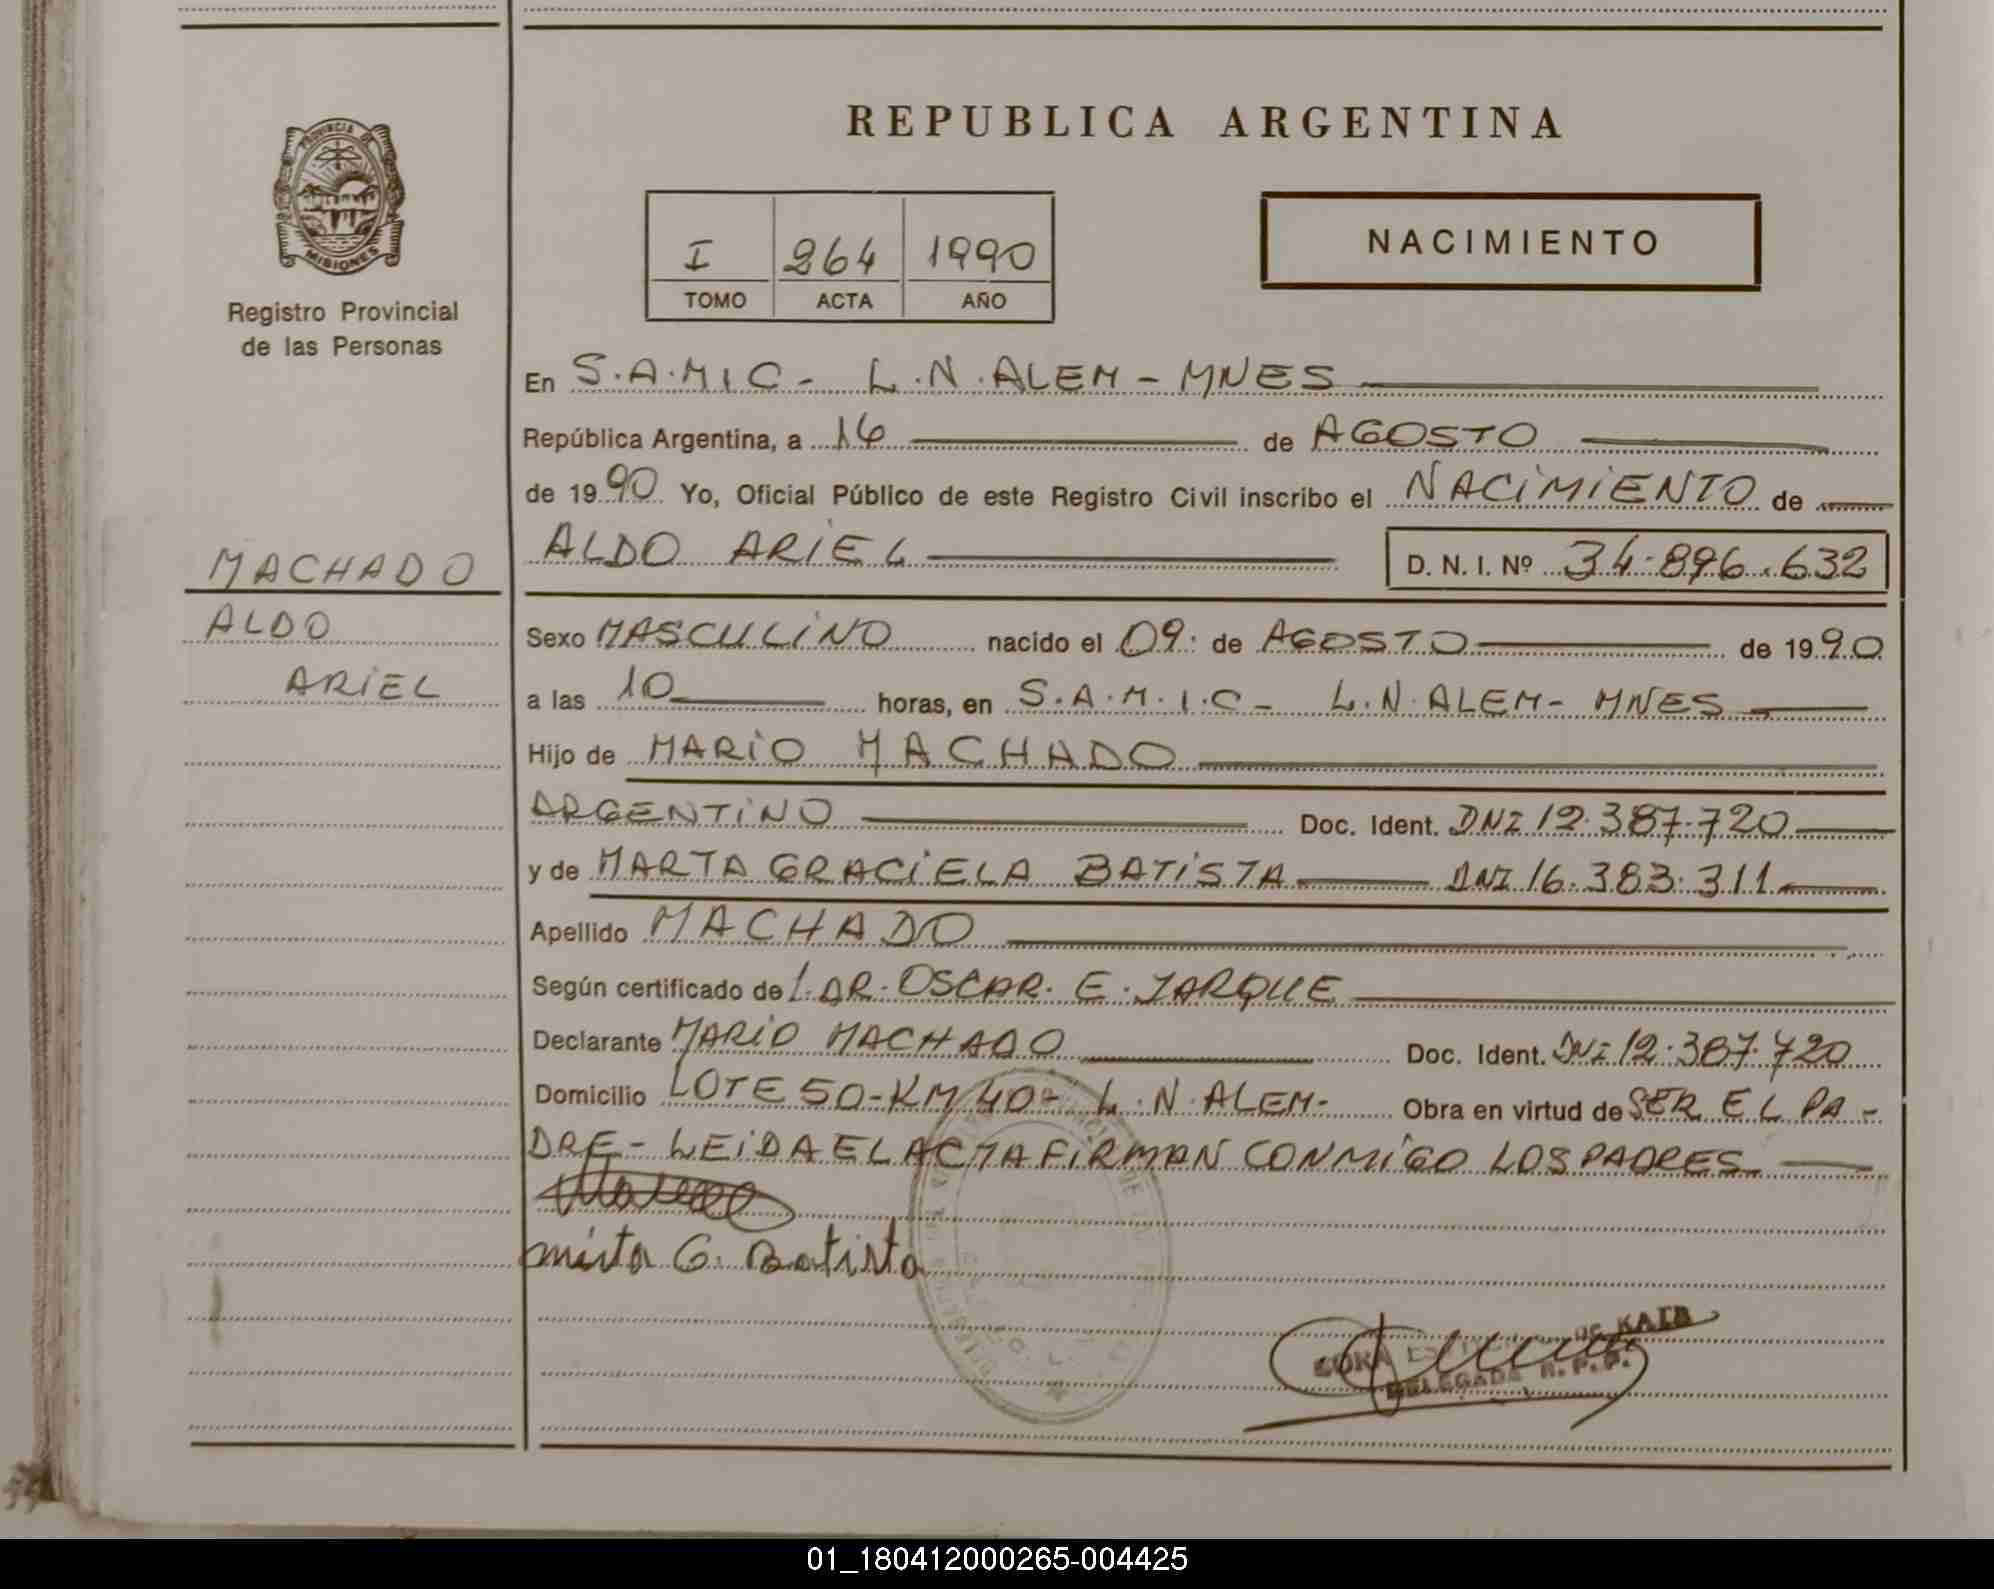 REPUBLICA ARGENTINA
PROVINCIA DE
MISIONES
Registro Provincial
de las Personas
I 264 1990
TOMO ACTA AÑO
NACIMIENTO
En S.A.MIC - L.N.ALEM - MNES
República Argentina, a 16 de AGOSTO
de 1990 Yo, Oficial Público de este Registro Civil inscribo el NACIMIENTO de
MACHADO
ALDO ARIEL D. N. I. Nº 34.896.632
ALDO
ARIEL
Sexo MASCULINO nacido el 09 de AGOSTO de 1990
a las 10 horas, en S.A.M.I.C - L.N.ALEM - MNES
Hijo de MARIO MACHADO
ARGENTINO Doc. Ident. DNI 12.387.720
y de MARTA GRACIELA BATISTA DNI 16.383.311
Apellido MACHADO
Según certificado de L. DR. OSCAR. E. JARQUE
Declarante MARIO MACHADO Doc. Ident. DNI 12.387.720
Domicilio LOTE 50-KM 40- L.N.ALEM- Obra en virtud de SER EL PA-
DRE - LEIDA EL ACTA FIRMAN CONMIGO LOS PADRES
G. Batista
DE KAIB
DELEGADA R.P.P.
01_180412000265-004425